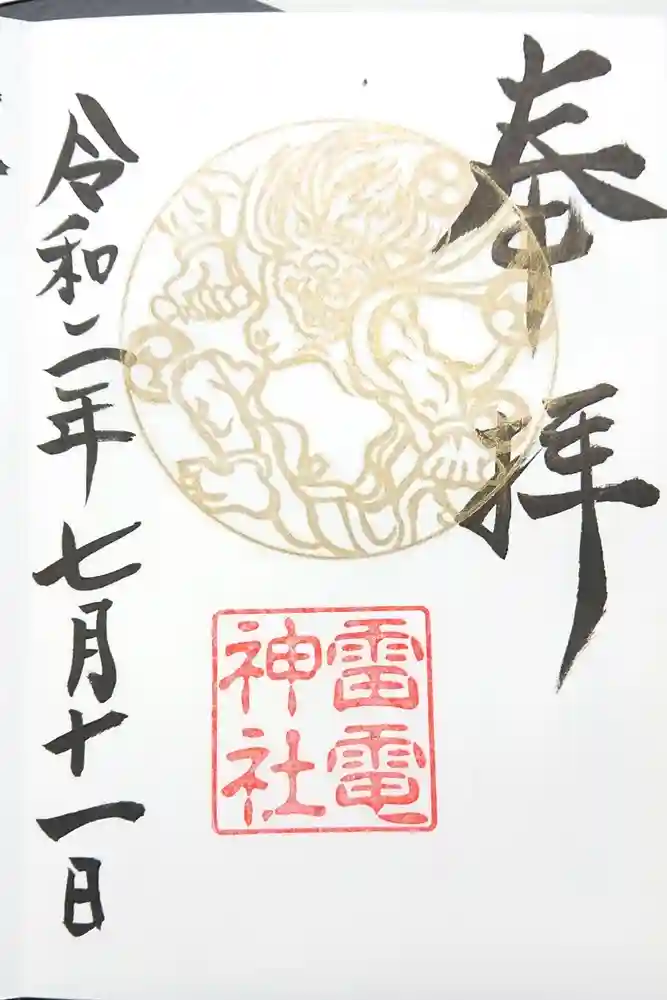 奉拝
雷電
神社
令和二年七月十一日